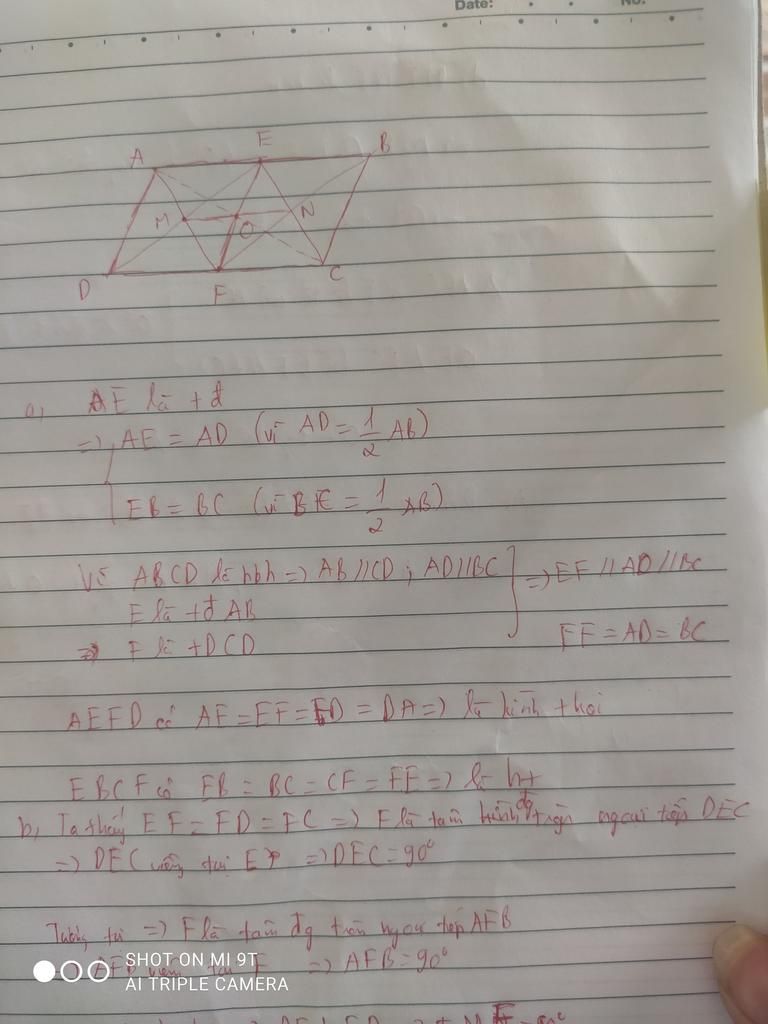 Date:
No.
A E B
M O N
D F C
a, AE là tđ
=> AE = AD (vì AD = 1/2 AB)
EB = BC (vì BE = 1/2 AB)
Vì ABCD là hbh => AB//CD ; AD//BC => EF //AD //BC
E là tđ AB
=> F là tD CD EF = AD = BC
AEFD có AE = EF = FD = DA => là hình thoi
EBCF có EB = BC = CF = FE => là ht
b, Ta thấy EF = FD = FC => F là tâm đg tròn ngoại tiếp DEC
=> DEC vuông tại E => DEC = 90°
Tương tự => E là tâm đg tròn ngoại tiếp AFB
AFB vuông tại F => AFB = 90°
SHOT ON MI 9T
AI TRIPLE CAMERA